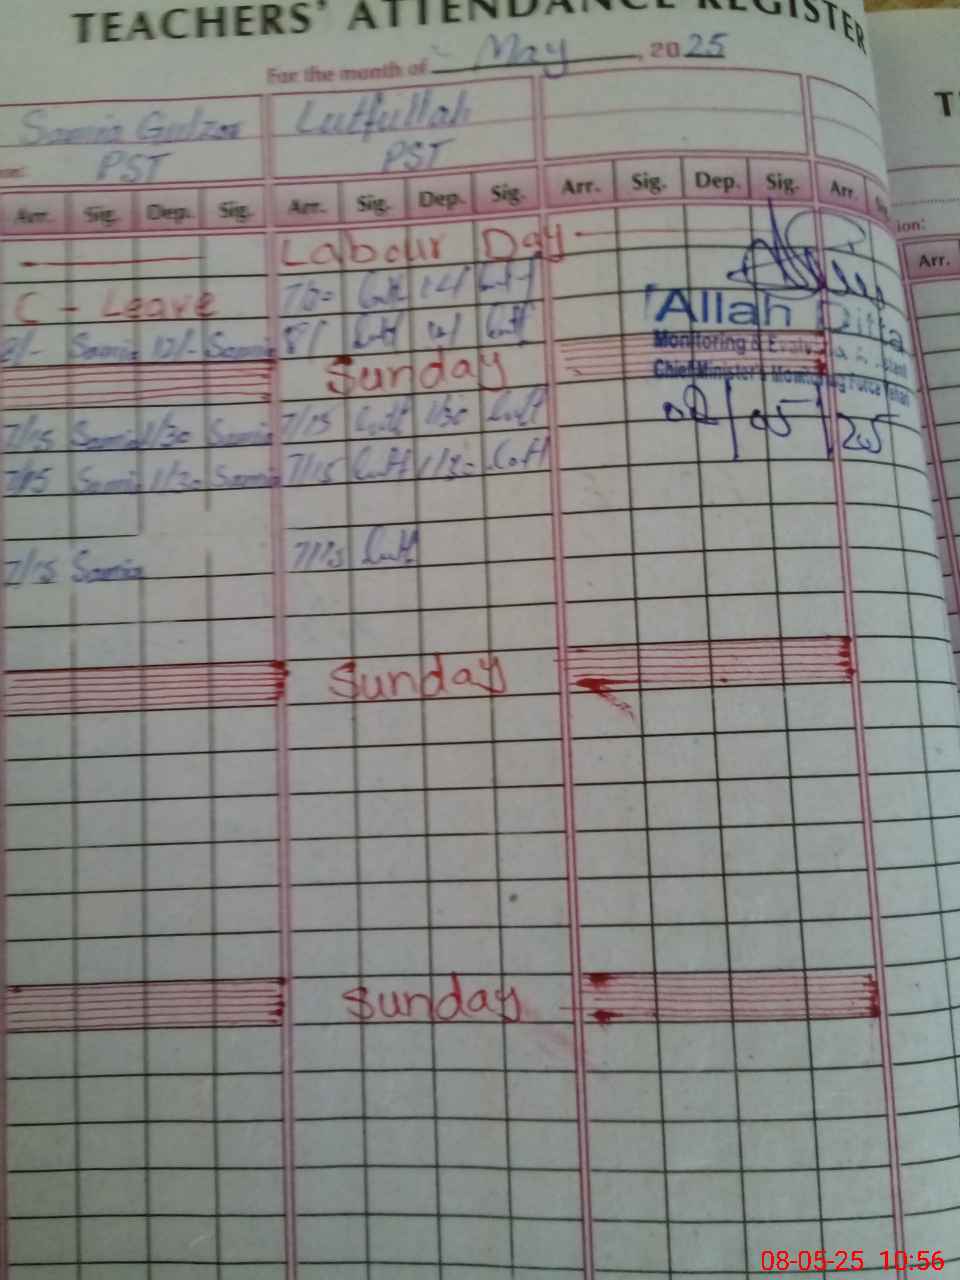 TEACHERS' ATTENDANCE REGISTER
For the month of May, 2025
Samia Gulzar Lutfullah
PST PST
Arr. Sig. Dep. Sig. Arr. Sig. Dep. Sig. Arr. Sig. Dep. Sig. Arr.
ion:
Arr.
Labour Day
C - Leave 7/30
'Allah Ditta
8/- Samia 12/- Samia 8/
Monitoring & Evalu
Sunday
Chief Minister's Monitoring Force
08/05/25
7/15 Samia 1/30 Samia 7/15 Lutf 1/30 Lutf
7/15 Samia 1/30 Samia 7/15 Lutf 1/30 Lutf
7/15 Samia 7/15 Lutf
Sunday
Sunday
08-05-25 10:56